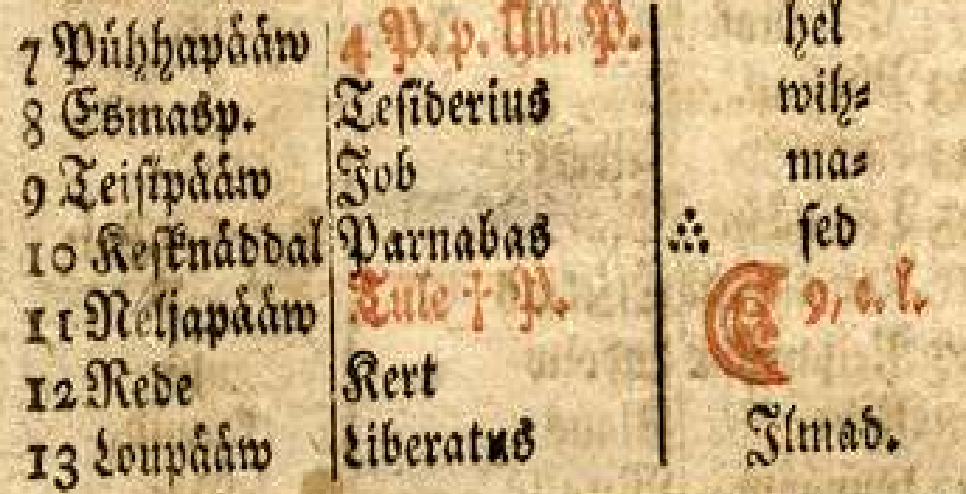 7 Pühhapääw 4 P. p. Ull. P. hel
8 Esmasp. Tesiderius wih⸗
9 Teisipääw Job ma⸗
10 Kesknäddal Parnabas sed
11 Neljapääw Tule † P. 9, e. l.
12 Rede Kert
13 Loupääw Liberatus Jlmad.